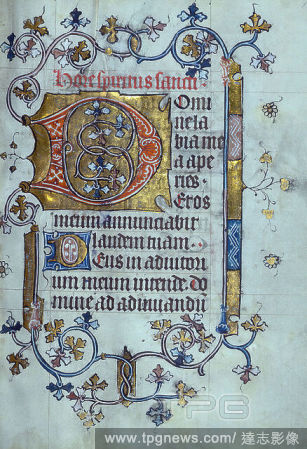 Hore spiritus sancti.
Domi
ne la
bia me
a ape
ries.
Et os
meum annunciabit
laudem tuam.
Deus in adiutori
um meum intende. do
mine ad adiuuandu
PG
www.tpgnews.com/ 達志影像